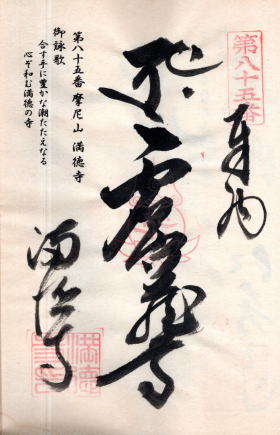 第八十五番
奉納
第八十五番 摩尼山 満徳寺
御詠歌
合す手に豊かな潮たたえなる
心ぞ和む満徳の寺
満徳寺